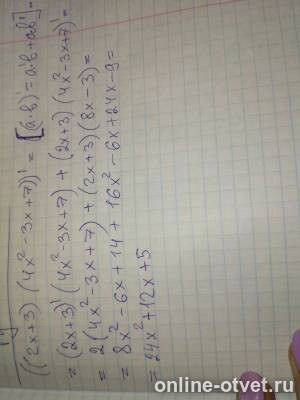 ((2x+3) (4x²-3x+7))' = [(a·b)' = a'b + ab'] =
= (2x+3)' (4x²-3x+7) + (2x+3) (4x²-3x+7)' =
= 2(4x²-3x+7) + (2x+3)(8x-3) =
= 8x²-6x+14 + 16x²-6x+24x-9 =
= 24x²+12x+5
online-otvet.ru